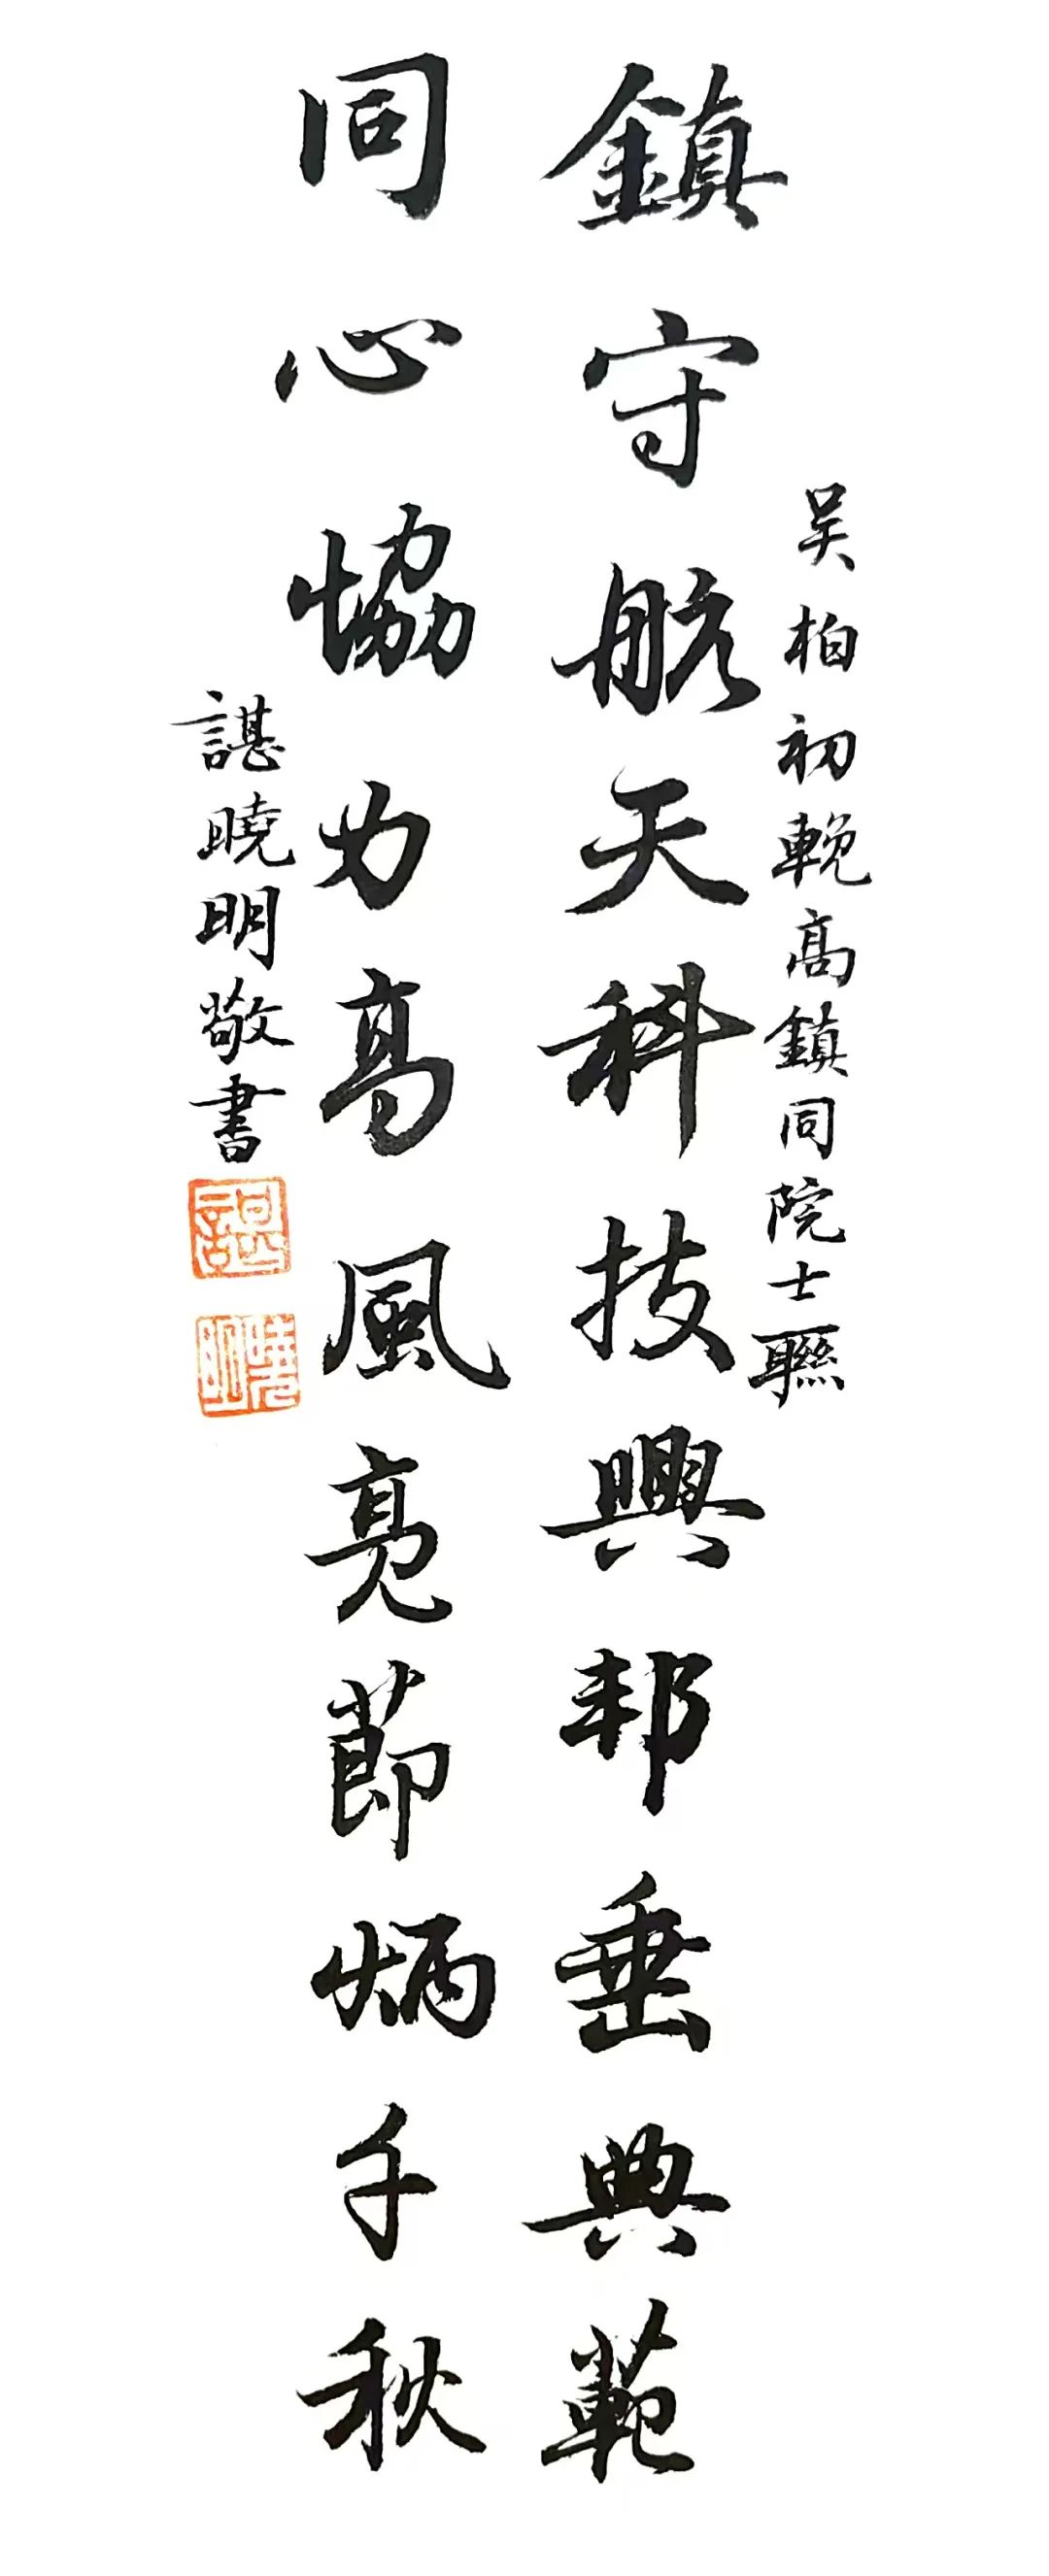 吴柏初輓高鎮同院士聯
鎮守航天科技興邦垂典範
同心恊力高風亮節炳千秋
諶曉明敬書
諶
曉明